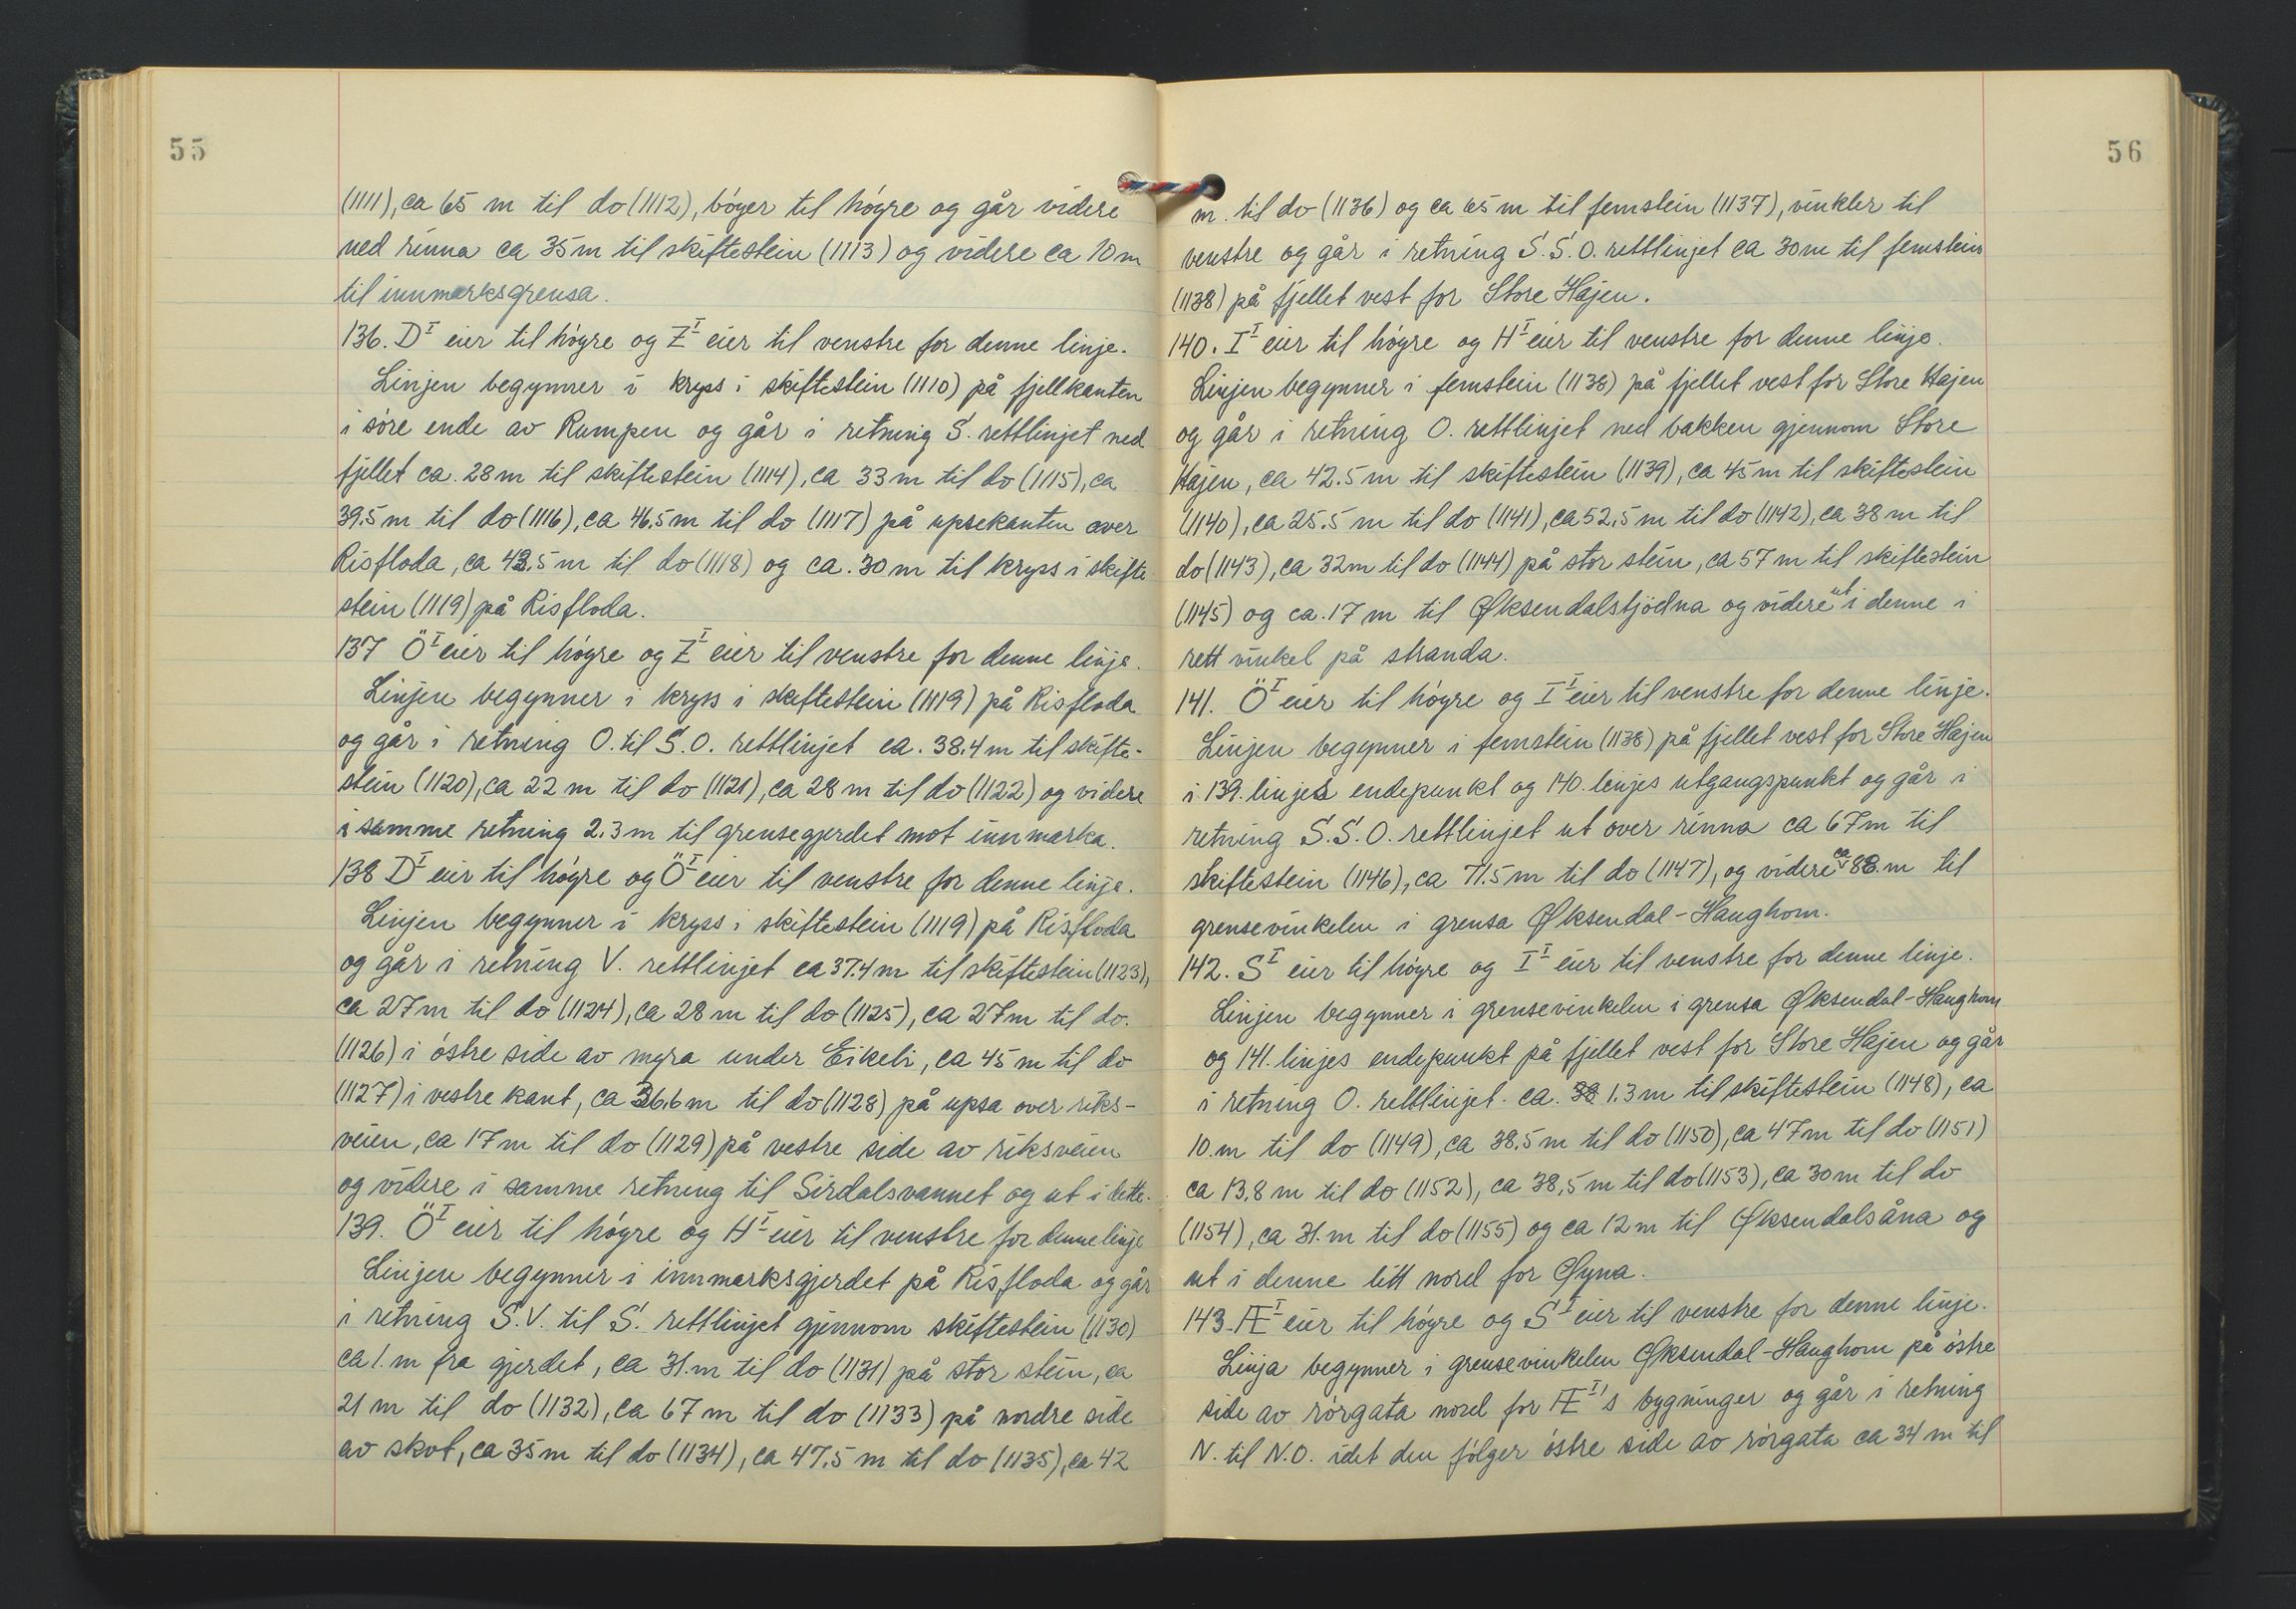 55
(1111), ca 65 m til do (1112), böyer til höyre og går videre
ned rinna ca 35 m til skiftestein (1113) og videre ca 10 m
til innmarksgrensa.
136. D^I eier til höyre og Z^I eier til venstre for denne linje.
Linjen begynner i kryss i skiftestein (1110) på fjellkanten
i söre ende av Rumpen og går i retning S. rettlinjet ned
fjellet ca. 28 m til skiftestein (1114), ca 33 m til do (1115), ca
39.5 m til do (1116), ca 46.5 m til do (1117) på upsekanten over
Risfloda, ca 43.5 m til do (1118) og ca. 30 m til kryss i skifte-
stein (1119) på Risfloda.
137 Ö^I eier til höyre og Z^I eier til venstre for denne linje.
Linjen begynner i kryss i skiftestein (1119) på Risfloda
og går i retning O. til S.O. rettlinjet ca. 38.4 m til skifte-
stein (1120), ca 22 m til do (1121), ca 28 m til do (1122) og videre
i samme retning 2.3 m til grensegjerdet mot innmarka.
138 D^I eier til höyre og Ö^I eier til venstre for denne linje.
Linjen begynner i kryss i skiftestein (1119) på Risfloda
og går i retning V. rettlinjet ca 37.4 m til skiftestein (1123),
ca 27 m til do (1124), ca 28 m til do (1125), ca 27 m til do.
(1126) i östre side av myra under Eikeli, ca 45 m til do
(1127) i vestre kant, ca 36.6 m til do (1128) på upsa over riks-
veien, ca 17 m til do (1129) på vestre side av riksveien
og videre i samme retning til Sirdalsvannet og ut i dette.
139. Ö^I eier til höyre og H^I eier til venstre for denne linje
Linjen begynner i innmarksgjerdet på Risfloda og går
i retning S.V. til S. rettlinjet gjennom skiftestein (1130)
ca 1. m fra gjerdet, ca 31. m til do (1131) på stor stein, ca
21 m til do (1132), ca 67 m til do (1133) på nordre side
av skot, ca 35 m til do (1134), ca 47.5 m til do (1135), ca 42
56
m. til do (1136) og ca 65 m til femstein (1137), vinkler til
venstre og går i retning S.S.O. rettlinjet ca 30 m til femstein
(1138) på fjellet vest for Store Hajen.
140. I^I eier til höyre og H^I eier til venstre for denne linje.
Linjen begynner i femstein (1138) på fjellet vest for Store Hajen
og går i retning O. rettlinjet ned bakken gjennom Store
Hajen, ca 42.5 m til skiftestein (1139), ca 45 m til skiftestein
(1140), ca 25.5 m til do (1141), ca 52,5 m til do (1142), ca 38 m til
do (1143), ca 32 m til do (1144) på stor stein, ca 57 m til skiftestein
(1145) og ca. 17 m til Øksendalstjödna og videre ut i denne i
rett vinkel på stranda.
141. Ö^I eier til höyre og I^I eier til venstre for denne linje.
Linjen begynner i femstein (1138) på fjellet vest for Store Hajen
i 139. linjes endepunkt og 140. linjes utgangspunkt og går i
retning S.S.O. rettlinjet ut over rinna ca 67 m til
skiftestein (1146), ca 71.5 m til do (1147), og videre ca 88. m til
grensevinkelen i grensa Øksendal-Haughom.
142. S^I eier til höyre og I^I eier til venstre for denne linje.
Linjen begynner i grensevinkelen i grensa Øksendal-Haughom
og 141. linjes endepunkt på fjellet vest for Store Hajen og går
i retning O. rettlinjet. ca. 1.3 m til skiftestein (1148), ca
10. m til do (1149), ca 38.5 m til do (1150), ca 47 m til do (1151)
ca 13.8 m til do (1152), ca 38,5 m til do (1153), ca 30 m til do
(1154), ca 31. m til do (1155) og ca 12 m til Øksendalsåna og
ut i denne litt nord for Øyna.
143. Æ^I eier til höyre og S^I eier til venstre for denne linje.
Linja begynner i grensevinkelen Øksendal-Haughom på östre
side av rörgata nord for Æ^I's bygninger og går i retning
N. til N.O. idet den fölger östre side av rörgata ca 34 m til